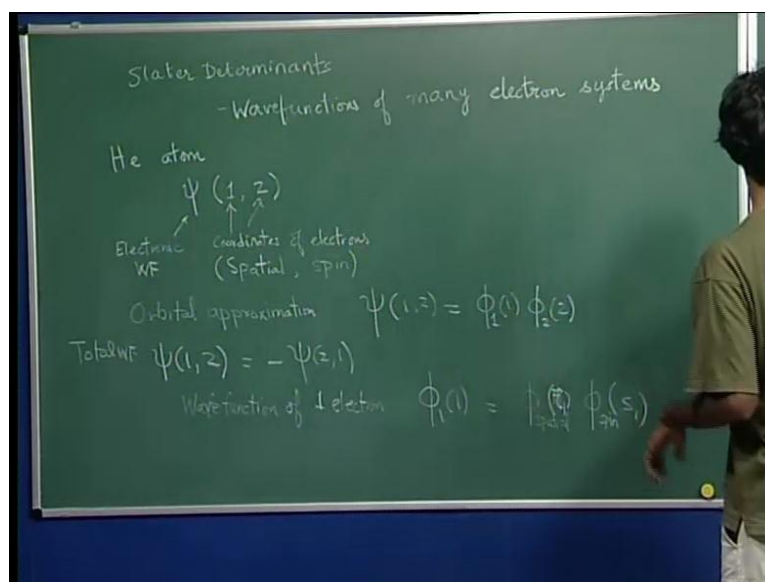 Slater Determinants
- Wavefunctions of many electron systems
He atom
ψ (1, 2)
Electronic WF
Coordinates of electrons
(Spatial, spin)
Orbital approximation ψ(1,2) = ϕ₁(1) ϕ₂(2)
Total WF ψ(1,2) = - ψ(2,1)
Wavefunction of 1 electron ϕ₁(1) = ϕ ϕ (S₁)